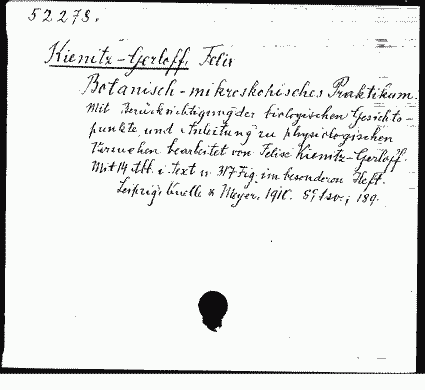 52278.
Kienitz-Gerloff, Felix
Botanisch-mikroskopisches Praktikum.
Mit Berücksichtigung der biologischen Gesichts-
punkte und Anleitung zu physiologischen
Versuchen bearbeitet von Felix Kienitz-Gerloff.
Mit 14 Abb. i. Text u. 317 Fig. im besonderen Heft.
Leipzig: Quelle & Meyer. 1910. 189.